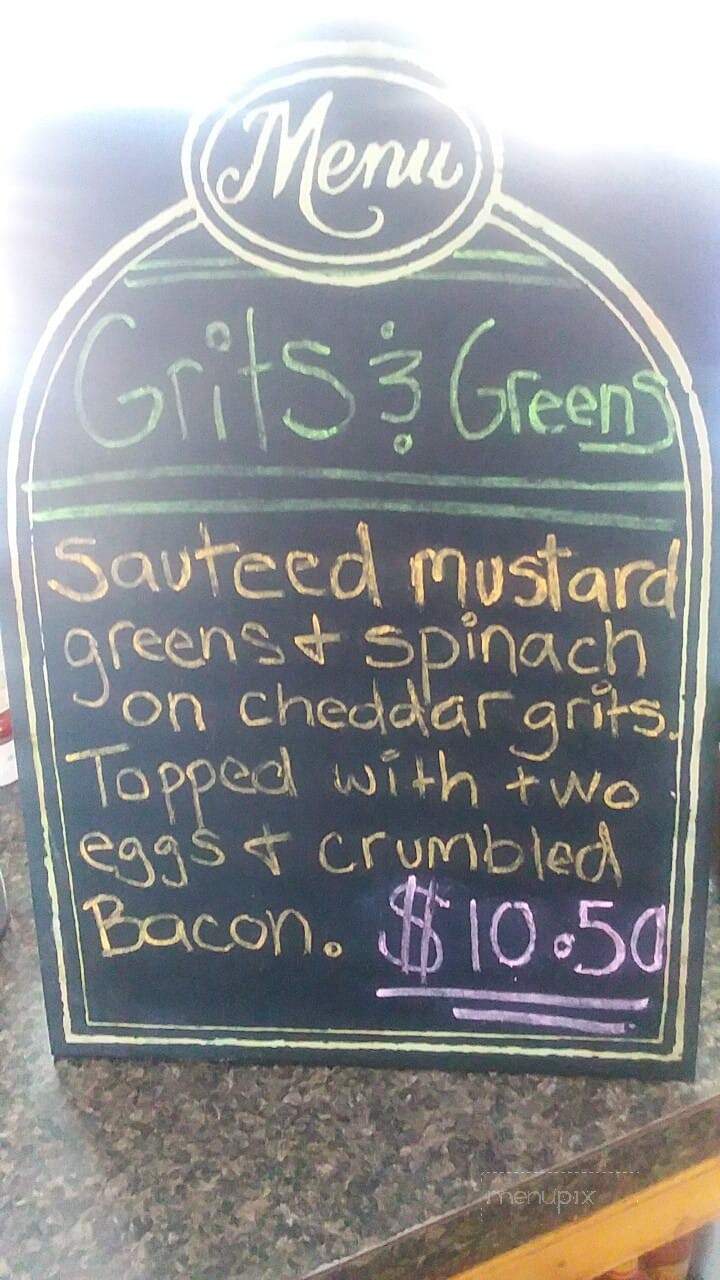 Menu
Grits & Greens
Sauteed mustard
greens & spinach
on cheddar grits.
Topped with two
eggs & crumbled
Bacon. $10.50
menupix